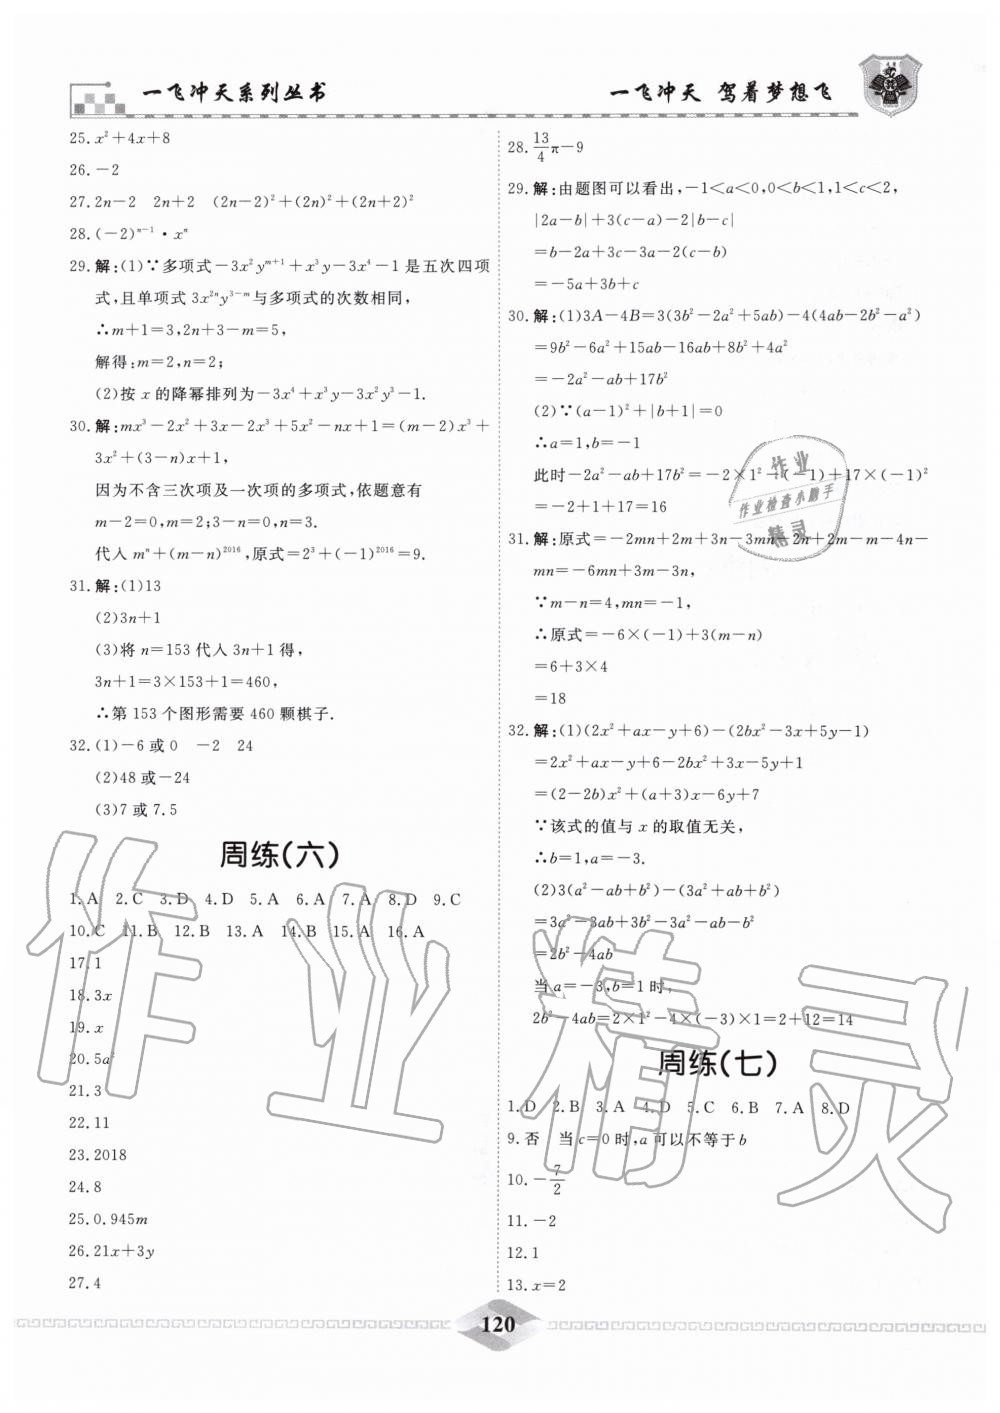 一飞冲天系列丛书
一飞冲天 驾着梦想飞
25. x²+4x+8
26. -2
27. 2n-2 2n+2 (2n-2)²+(2n)²+(2n+2)²
28. (-2)ⁿ⁻¹·xⁿ
29. 解:(1)∵多项式-3x²yᵐ⁺¹+x³y-3x⁴-1是五次四项
式,且单项式3x²ⁿy³⁻ᵐ与多项式的次数相同,
∴m+1=3,2n+3-m=5,
解得:m=2,n=2;
(2)按x的降幂排列为-3x⁴+x³y-3x²y³-1.
30. 解:mx³-2x²+3x-2x³+5x²-nx+1=(m-2)x³+
3x²+(3-n)x+1,
因为不含三次项及一次项的多项式,依题意有
m-2=0,m=2;3-n=0,n=3.
代入mⁿ+(m-n)²⁰¹⁶,原式=2³+(-1)²⁰¹⁶=9.
31. 解:(1)13
(2)3n+1
(3)将n=153代入3n+1得,
3n+1=3×153+1=460,
∴第153个图形需要460颗棋子.
32. (1)-6或0 -2 24
(2)48或-24
(3)7或7.5
周练(六)
1. A 2. C 3. D 4. D 5. A 6. A 7. A 8. D 9. C
10. C 11. B 12. B 13. A 14. B 15. A 16. A
17. 1
18. 3x
19. x
20. 5a²
21. 3
22. 11
23. 2018
24. 8
25. 0.945m
26. 21x+3y
27. 4
28. 13/4π-9
29. 解:由题图可以看出,-1<a<0,0<b<1,1<c<2,
|2a-b|+3(c-a)-2|b-c|
=b-2a+3c-3a-2(c-b)
=-5a+3b+c
30. 解:(1)3A-4B=3(3b²-2a²+5ab)-4(4ab-2b²-a²)
=9b²-6a²+15ab-16ab+8b²+4a²
=-2a²-ab+17b²
(2)∵(a-1)²+|b+1|=0
∴a=1,b=-1
此时-2a²-ab+17b²=-2×1²-(-1)+17×(-1)²
=-2+1+17=16
31. 解:原式=-2mn+2m+3n-3mn-2n+2m-m-4n-
mn=-6mn+3m-3n,
∵m-n=4,mn=-1,
∴原式=-6×(-1)+3(m-n)
=6+3×4
=18
32. 解:(1)(2x²+ax-y+6)-(2bx²-3x+5y-1)
=2x²+ax-y+6-2bx²+3x-5y+1
=(2-2b)x²+(a+3)x-6y+7
∵该式的值与x的取值无关,
∴b=1,a=-3.
(2)3(a²-ab+b²)-(3a²+ab+b²)
=3a²-3ab+3b²-3a²-ab-b²
=2b²-4ab
当a=-3,b=1时,
2b²-4ab=2×1²-4×(-3)×1=2+12=14
周练(七)
1. D 2. B 3. A 4. D 5. C 6. B 7. A 8. D
9. 否 当c=0时,a可以不等于b
10. -7/2
11. -2
12. 1
13. x=2
120
作业
作业检查小助手
精灵
作业精灵